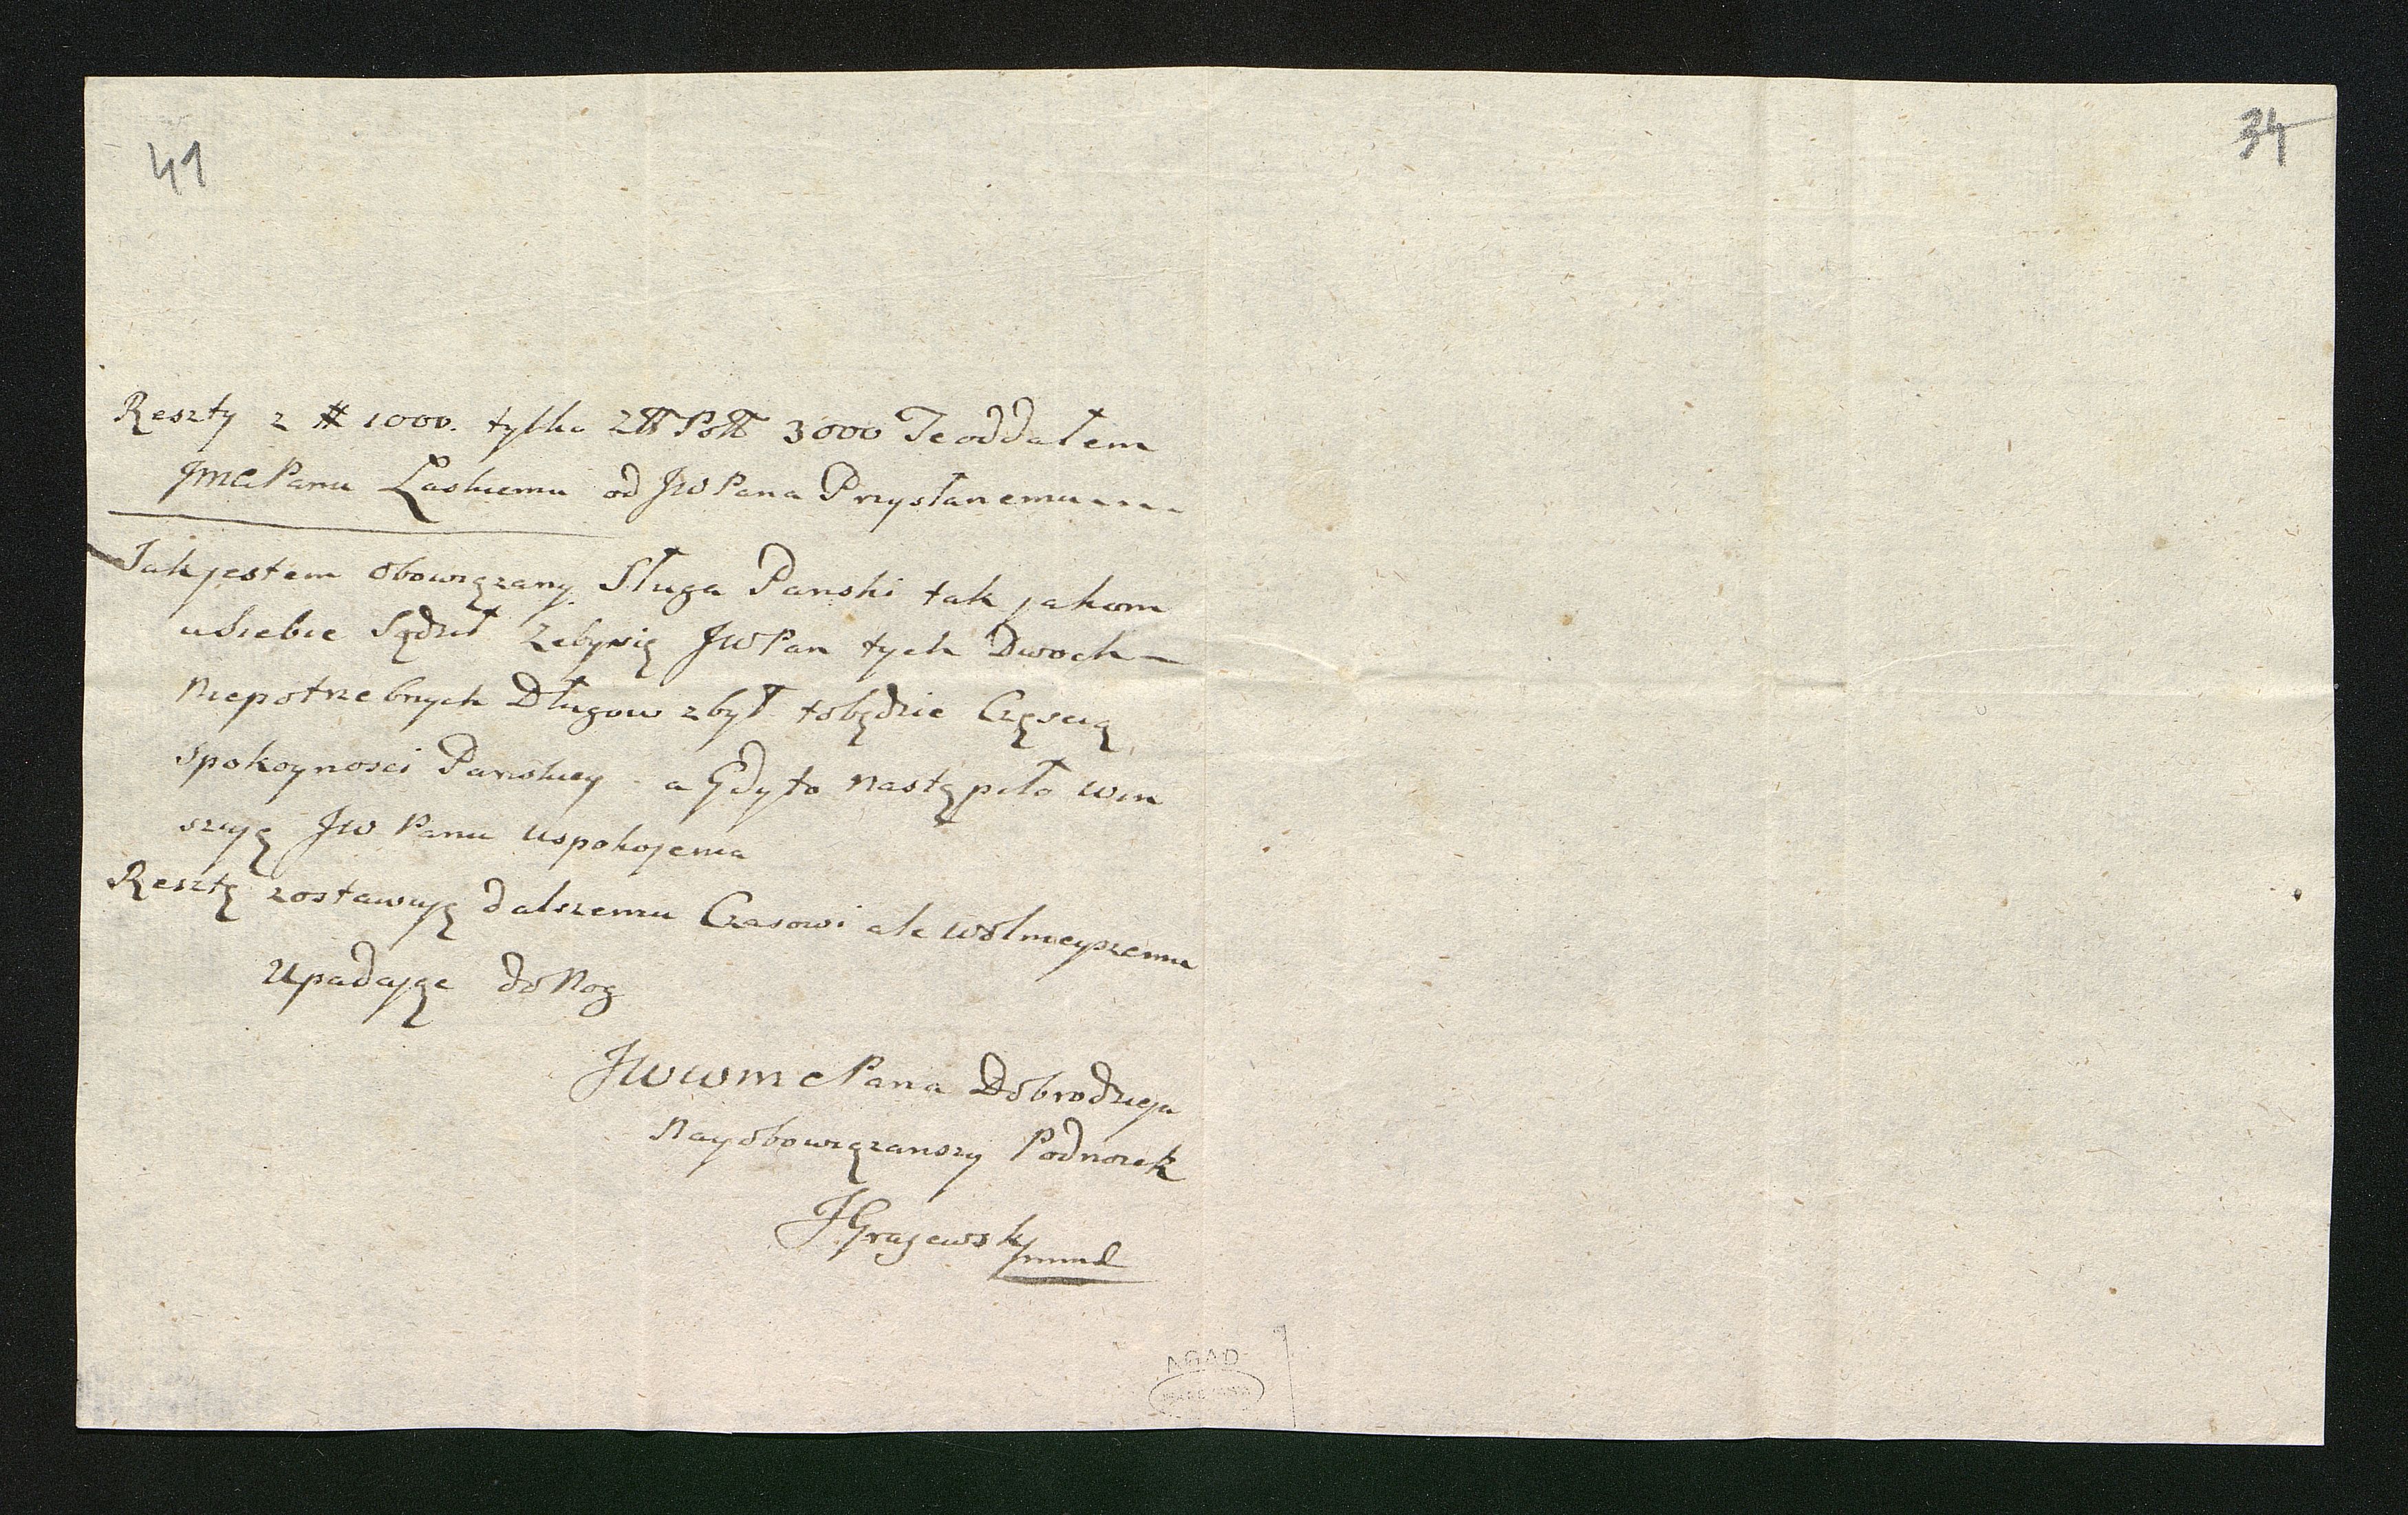 41
34
Reszty z # 1000. tylko Złł Połł 3000 Teoddałem
JmcPanu Laskiemu od JWPana Przysłanemu----
Jak jestem obowiązany Sługa Panski tak jakom
usiebie Sądził Zebysię JWPan tych Dwoch—
Niepotrzebnych Długow zbył tobędzie Częscią
Spokoynosci Panskiey a Gdyto nastąpiło win
szuję JW Panu uspokojenia
Resztę zostawuję dalszemu Czasowi ale wolnieyszemu
Upadając do Nog
JWWmcPana Dobrodzieja
Nayobowiązanszy Podnozek
JGrajewski
AGAD